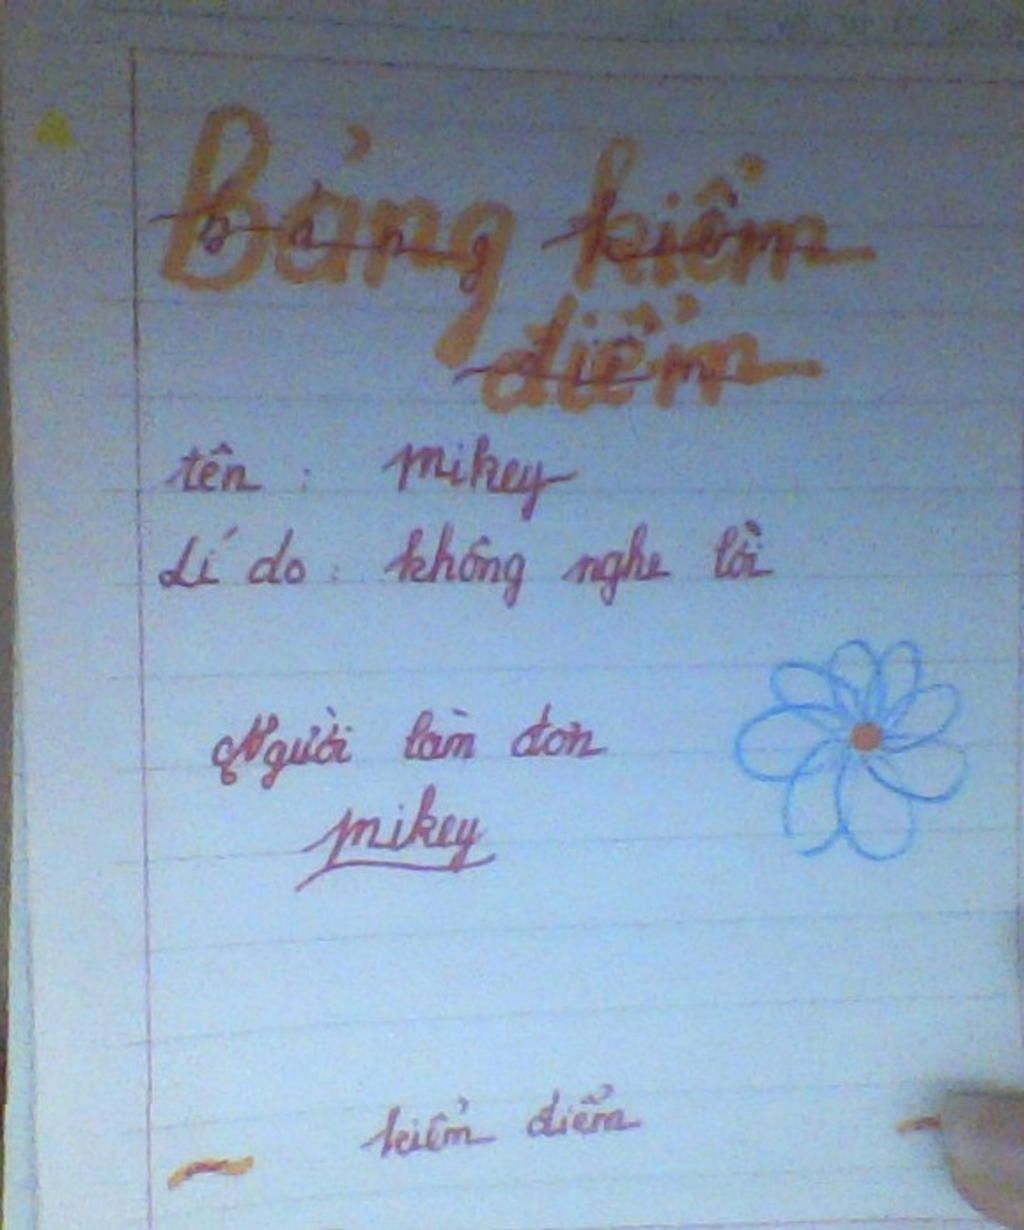 Bảng kiểm
điểm
tên : mikey
Lí do : không nghe lời
Người làm đơn
mikey
kiểm điểm